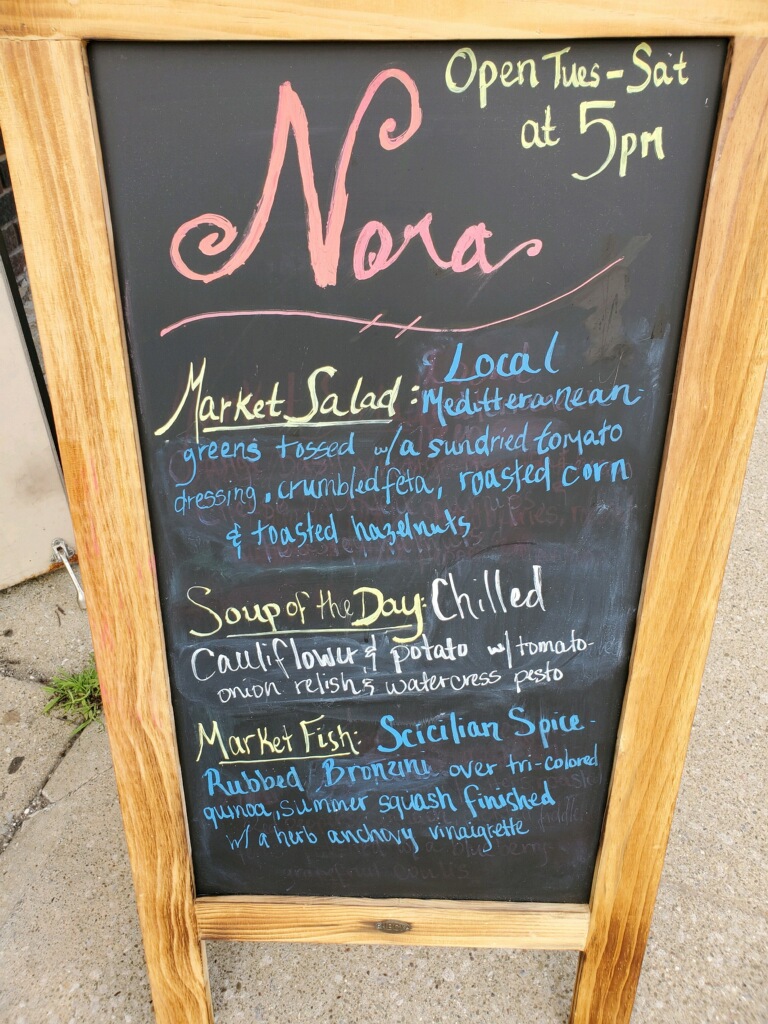 Open Tues-Sat
at 5pm
Nora
Market Salad: Local
Meditteranean
greens tossed w/a sundried tomato
dressing, crumbled feta, roasted corn
& toasted hazelnuts
Soup of the Day: Chilled
Cauliflower & potato w/tomato-
onion relish & watercress pesto
Market Fish: Scicilian Spice-
Rubbed Bronzini over tri-colored
quinoa, summer squash finished
w/ a herb anchovy vinaigrette